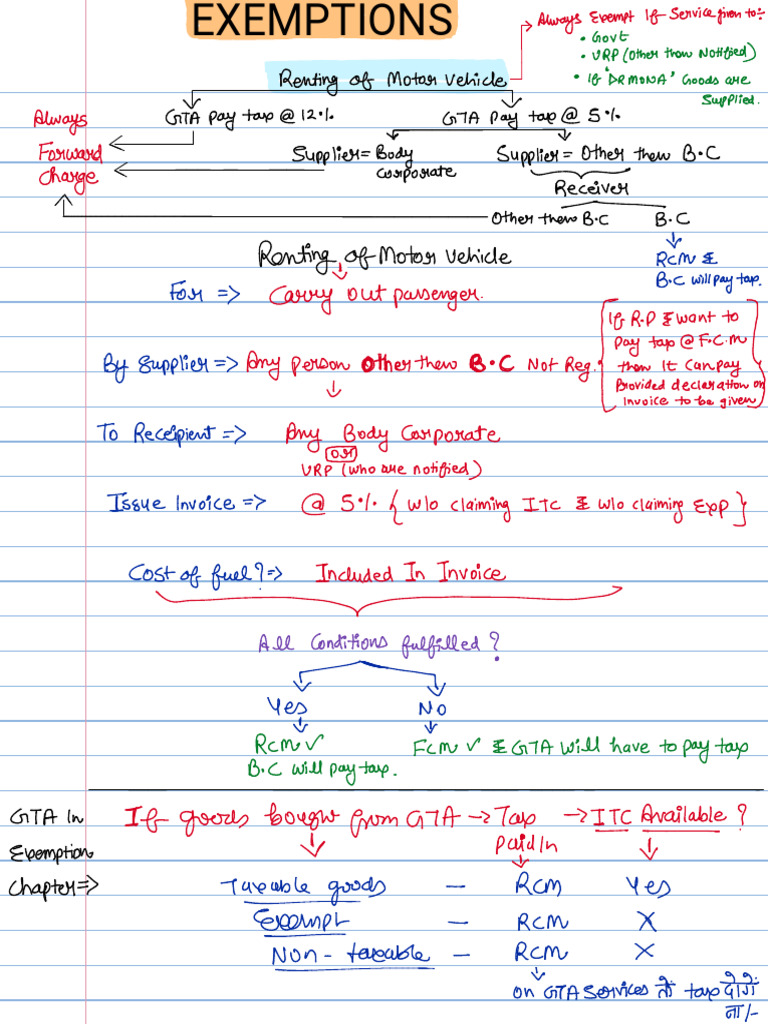 EXEMPTIONS
Always Exempt If Service given to:-
• Govt
• URP (Other then Notified)
• If 'DRMONA' Goods are
Supplied.
Renting of Motar vehicle
GTA pay tax @ 12%
GTA pay tax @ 5%
Always
Forward
Charge
Supplier = Body
Corporate
Supplier = Other then B.C
Receiver
Other then B.C
B.C
RCM &
B.C will pay tax.
Renting of Motor vehicle
For => Carry out passenger.
If R.P & want to
pay tax @ F.C.M
then it can pay
Provided declaration on
Invoice to be given
By Supplier => Any person Other then B.C Not Reg.
To Receipient => Any Body Corporate
or
URP (who are notified)
Issue Invoice => @ 5% { w/o claiming ITC & w/o claiming Exp }
Cost of fuel? => Included In Invoice
All Conditions fulfilled?
Yes
No
RCM ✓
B.C will pay tax.
FCM ✓ & GTA will have to pay tax
GTA In
Exemption
Chapter =>
If goods bought from GTA → Tax → ITC Available?
Paid In
Taxeable goods - RCM Yes
Exempt - RCM X
Non-taxeable - RCM X
on GTA Services तो tax दोगे
ना/-